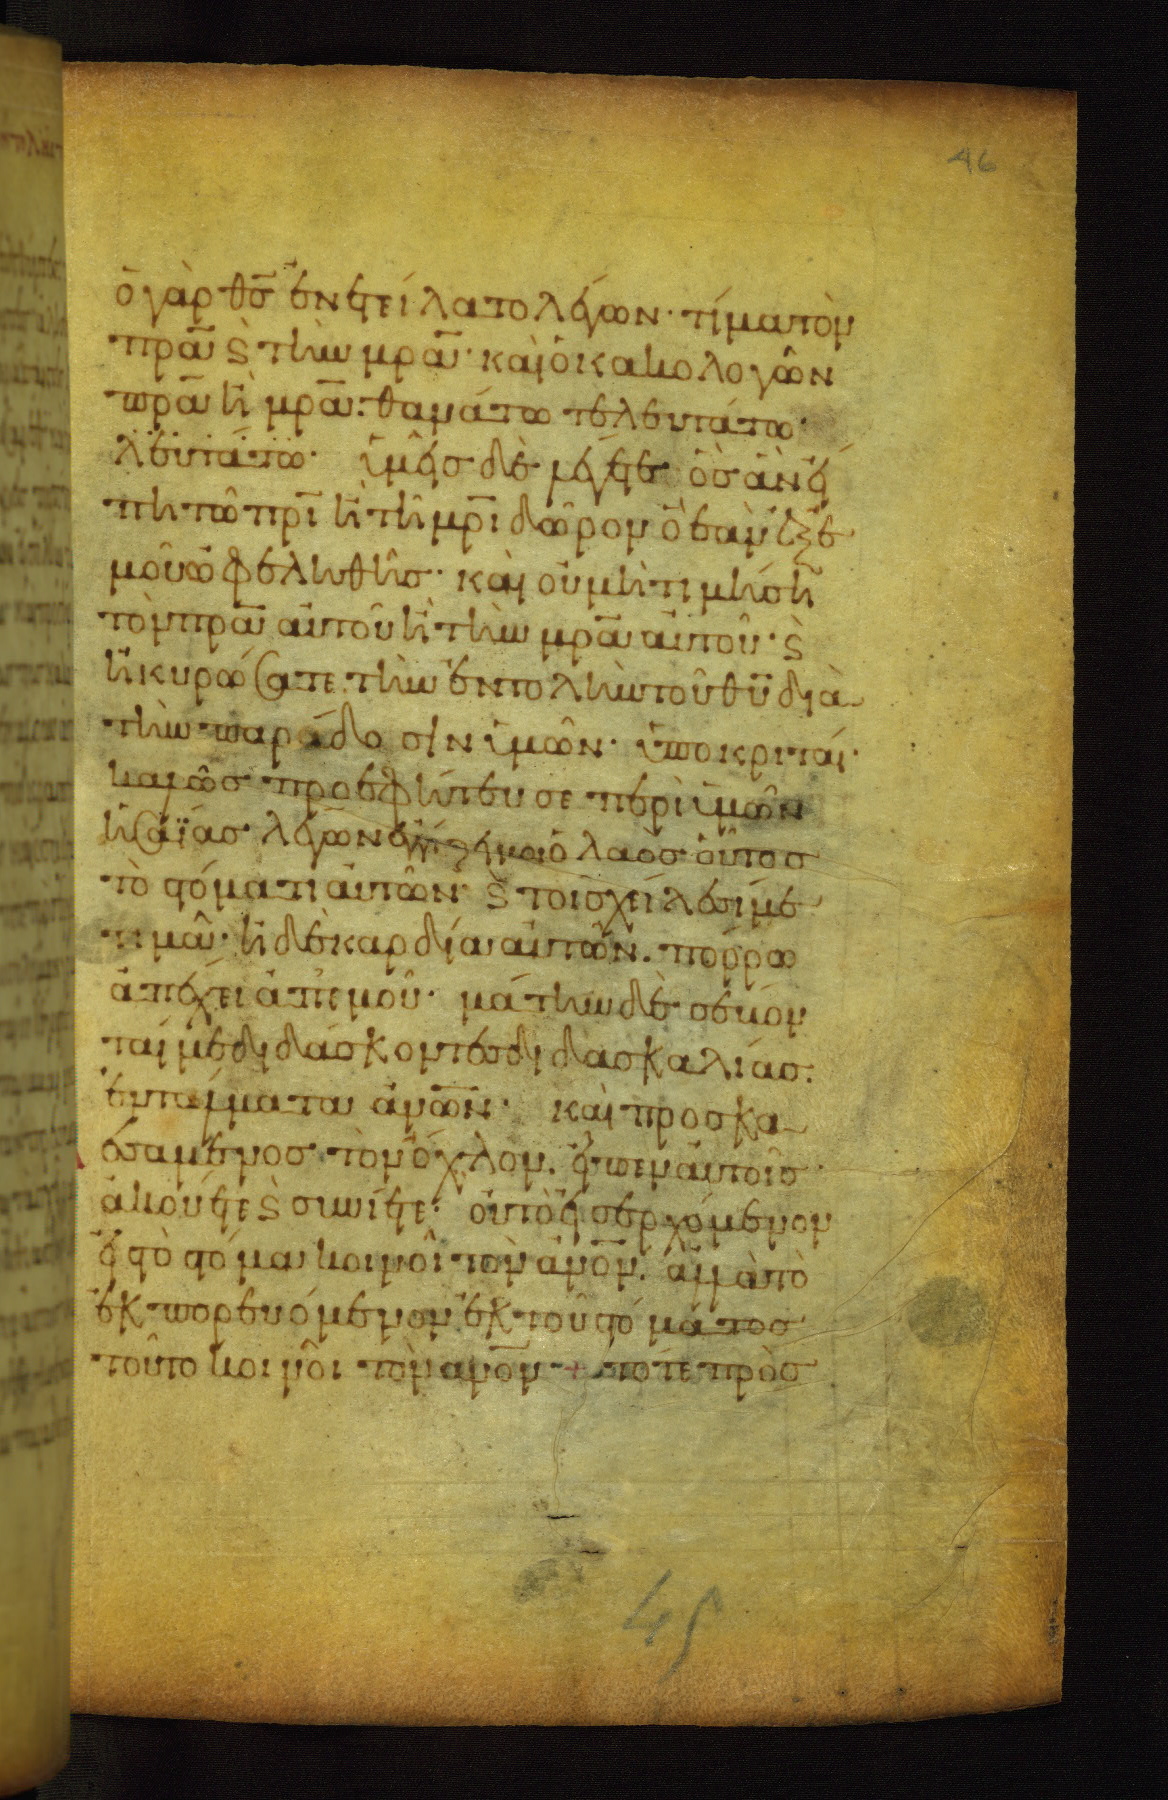 46
ὁ γὰρ θς ἐνετείλατο λέγων· τίμα τὸν
πρα ϛ τὴν μρα· καὶ ὁ κακολογῶν
πρα ἢ μρα· θανάτω τελευτάτω·
λευτάτω· ὑμεῖς δὲ λέγετε ὃς ἂν εί
πη τῶ πρι ἢ τῆ μρι δῶρον ὃ ἐὰν ἐξ ἐ
μοῦ ὠφεληθῆς· καὶ οὐ μὴ τιμήση
τὸν πρα αὐτοῦ ἢ τὴν μρα αὐτοῦ· ϛ
ἠκυρώσατε τὴν ἐντολὴν τοῦ θυ διὰ
τὴν παράδοσιν ὑμῶν· ὑποκριταί·
καλῶς προεφήτευσε περὶ ὑμῶν
ἡσαΐας λέγων ἐγγίζει μοι ὁ λαὸς οὗτος
τὸ στόματι αὐτῶν ϛ τοῖς χείλεσί με
τιμᾶ· ἡ δὲ καρδία αὐτῶν. πόρρω
ἀπέχει ἀπ' ἐμοῦ· μάτην δὲ σέβον
ταί με διδάσκοντες διδασκαλίας·
ἐντάλματα ἀνων· καὶ προσκα
εσάμενος τὸν ὄχλον. εἶπεν αὐτοῖς
ἀκούετε ϛ συνίετε· οὐ τὸ εἰσερχόμενον
εἰς τὸ στόμα κοινοῖ τὸν ἀνον. ἀλλὰ τὸ
ἐκπορευόμενον ἐκ τοῦ στόματος
τοῦτο κοινοῖ τὸν ανον + τότε πρὸσ
45